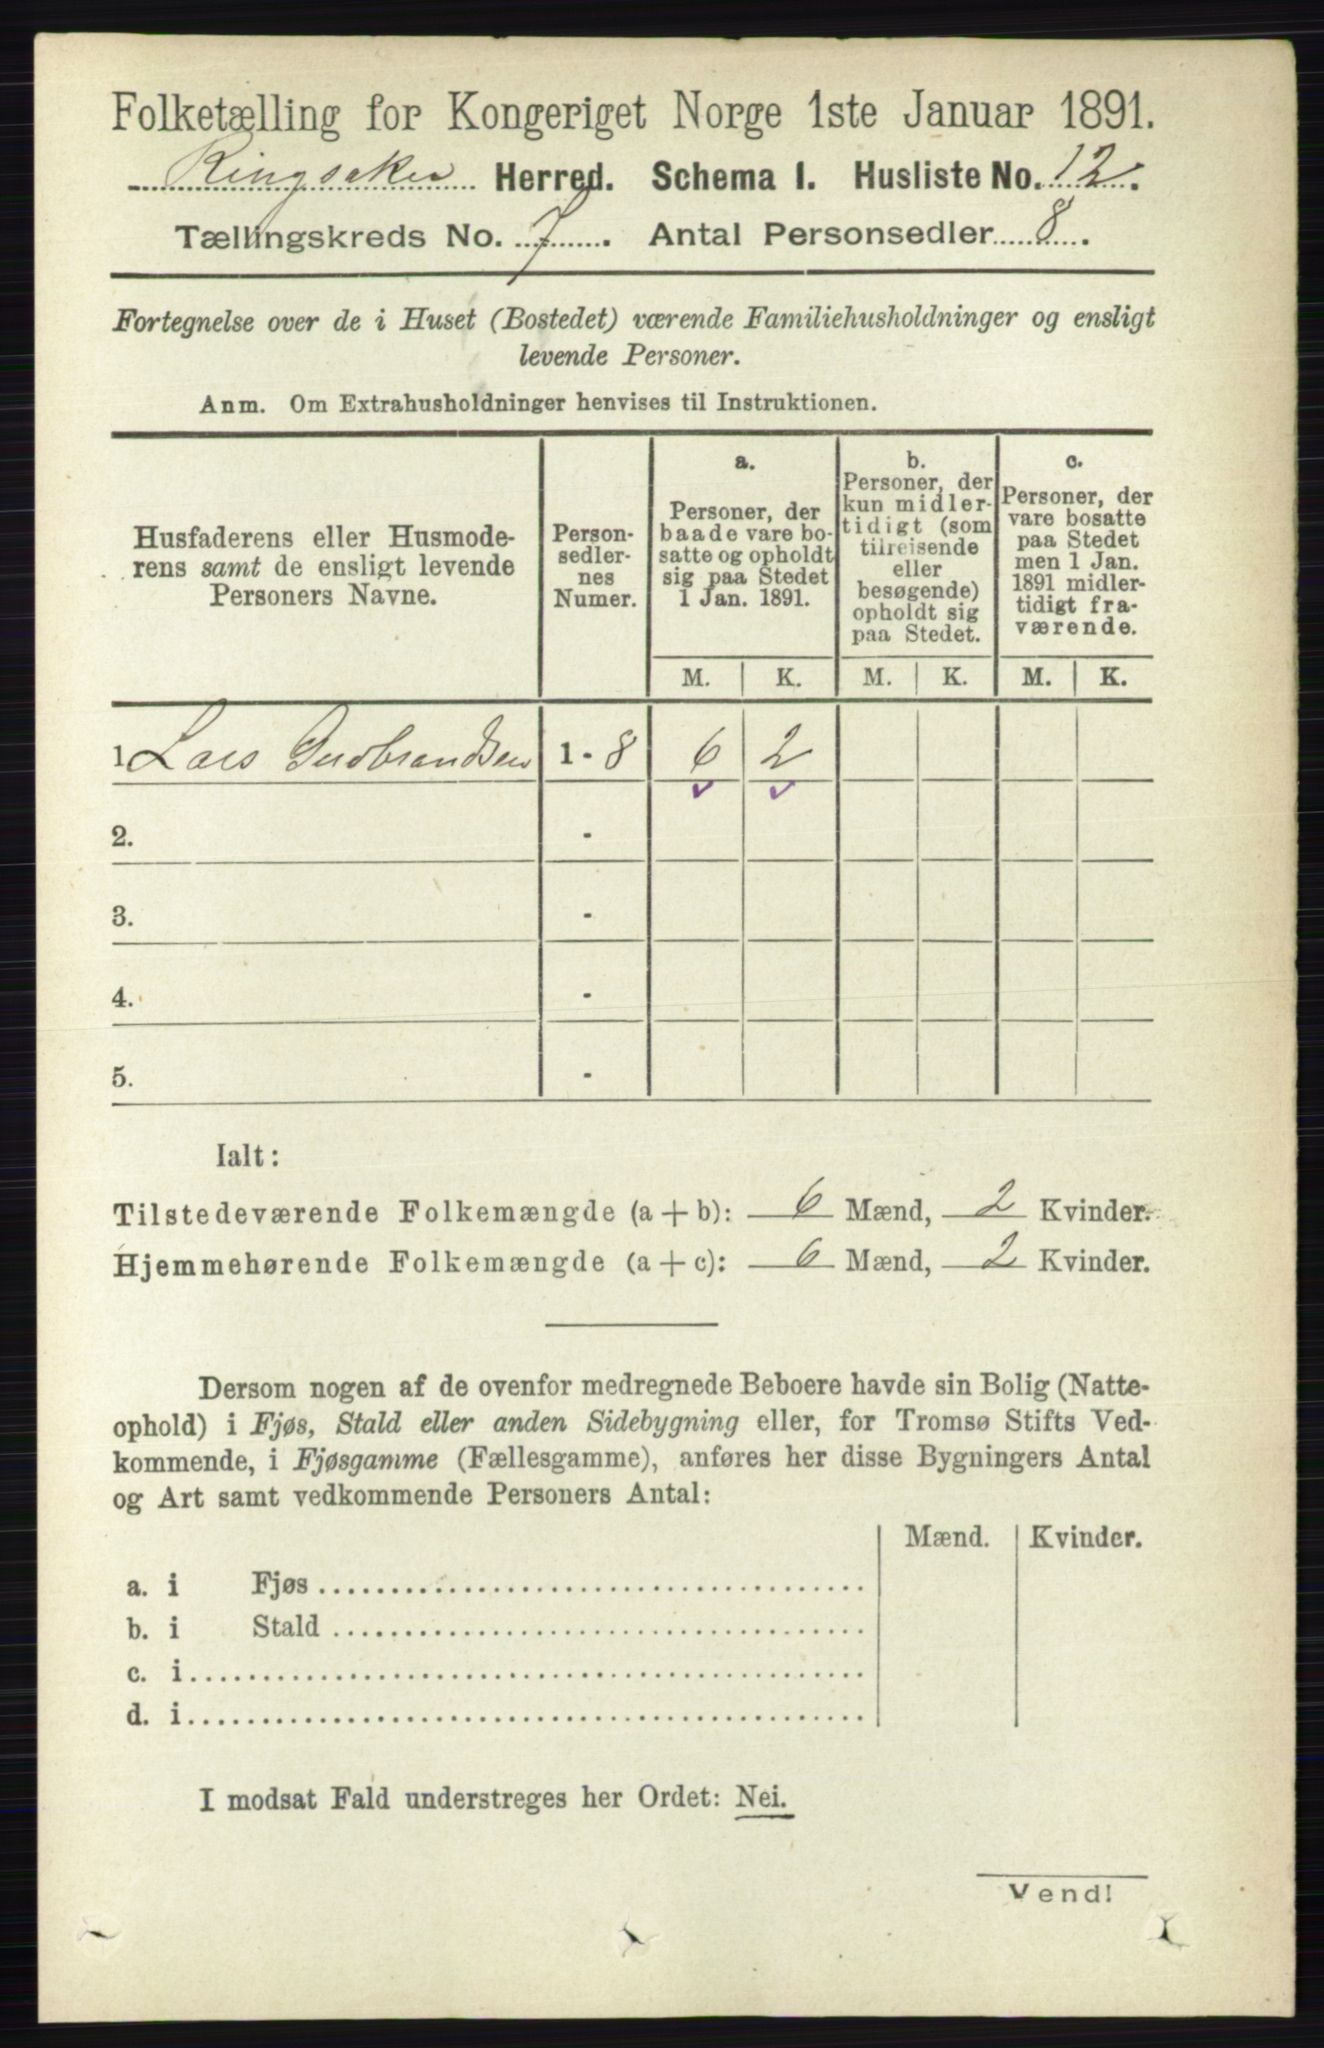 Folketælling for Kongeriget Norge 1ste Januar 1891.
Ringsaker Herred. Schema I. Husliste No. 12.
Tællingskreds No. 7. Antal Personsedler 8.
Fortegnelse over de i Huset (Bostedet) værende Familiehusholdninger og ensligt
levende Personer.
Anm. Om Extrahusholdninger henvises til Instruktionen.
Husfaderens eller Husmode-
rens samt de ensligt levende
Personers Navne.
Person-
sedler-
nes
Numer.
a.
Personer, der
baade vare bo-
satte og opholdt
sig paa Stedet
1 Jan. 1891.
b.
Personer, der
kun midler-
tidigt (som
tilreisende
eller
besøgende)
opholdt sig
paa Stedet.
c.
Personer, der
vare bosatte
paa Stedet
men 1 Jan.
1891 midler-
tidigt fra-
værende.
M. K. M. K. M. K.
1 Lars Gudbrandsen 1 - 8 6 2
2. -
3. -
4. -
5. -
Ialt:
Tilstedeværende Folkemængde (a + b): 6 Mænd, 2 Kvinder.
Hjemmehørende Folkemængde (a + c): 6 Mænd, 2 Kvinder.
Dersom nogen af de ovenfor medregnede Beboere havde sin Bolig (Natte-
ophold) i Fjøs, Stald eller anden Sidebygning eller, for Tromsø Stifts Ved-
kommende, i Fjøsgamme (Fællesgamme), anføres her disse Bygningers Antal
og Art samt vedkommende Personers Antal:
Mænd. Kvinder.
a. i Fjøs
b. i Stald
c. i
d. i
I modsat Fald understreges her Ordet: Nei.
Vend!